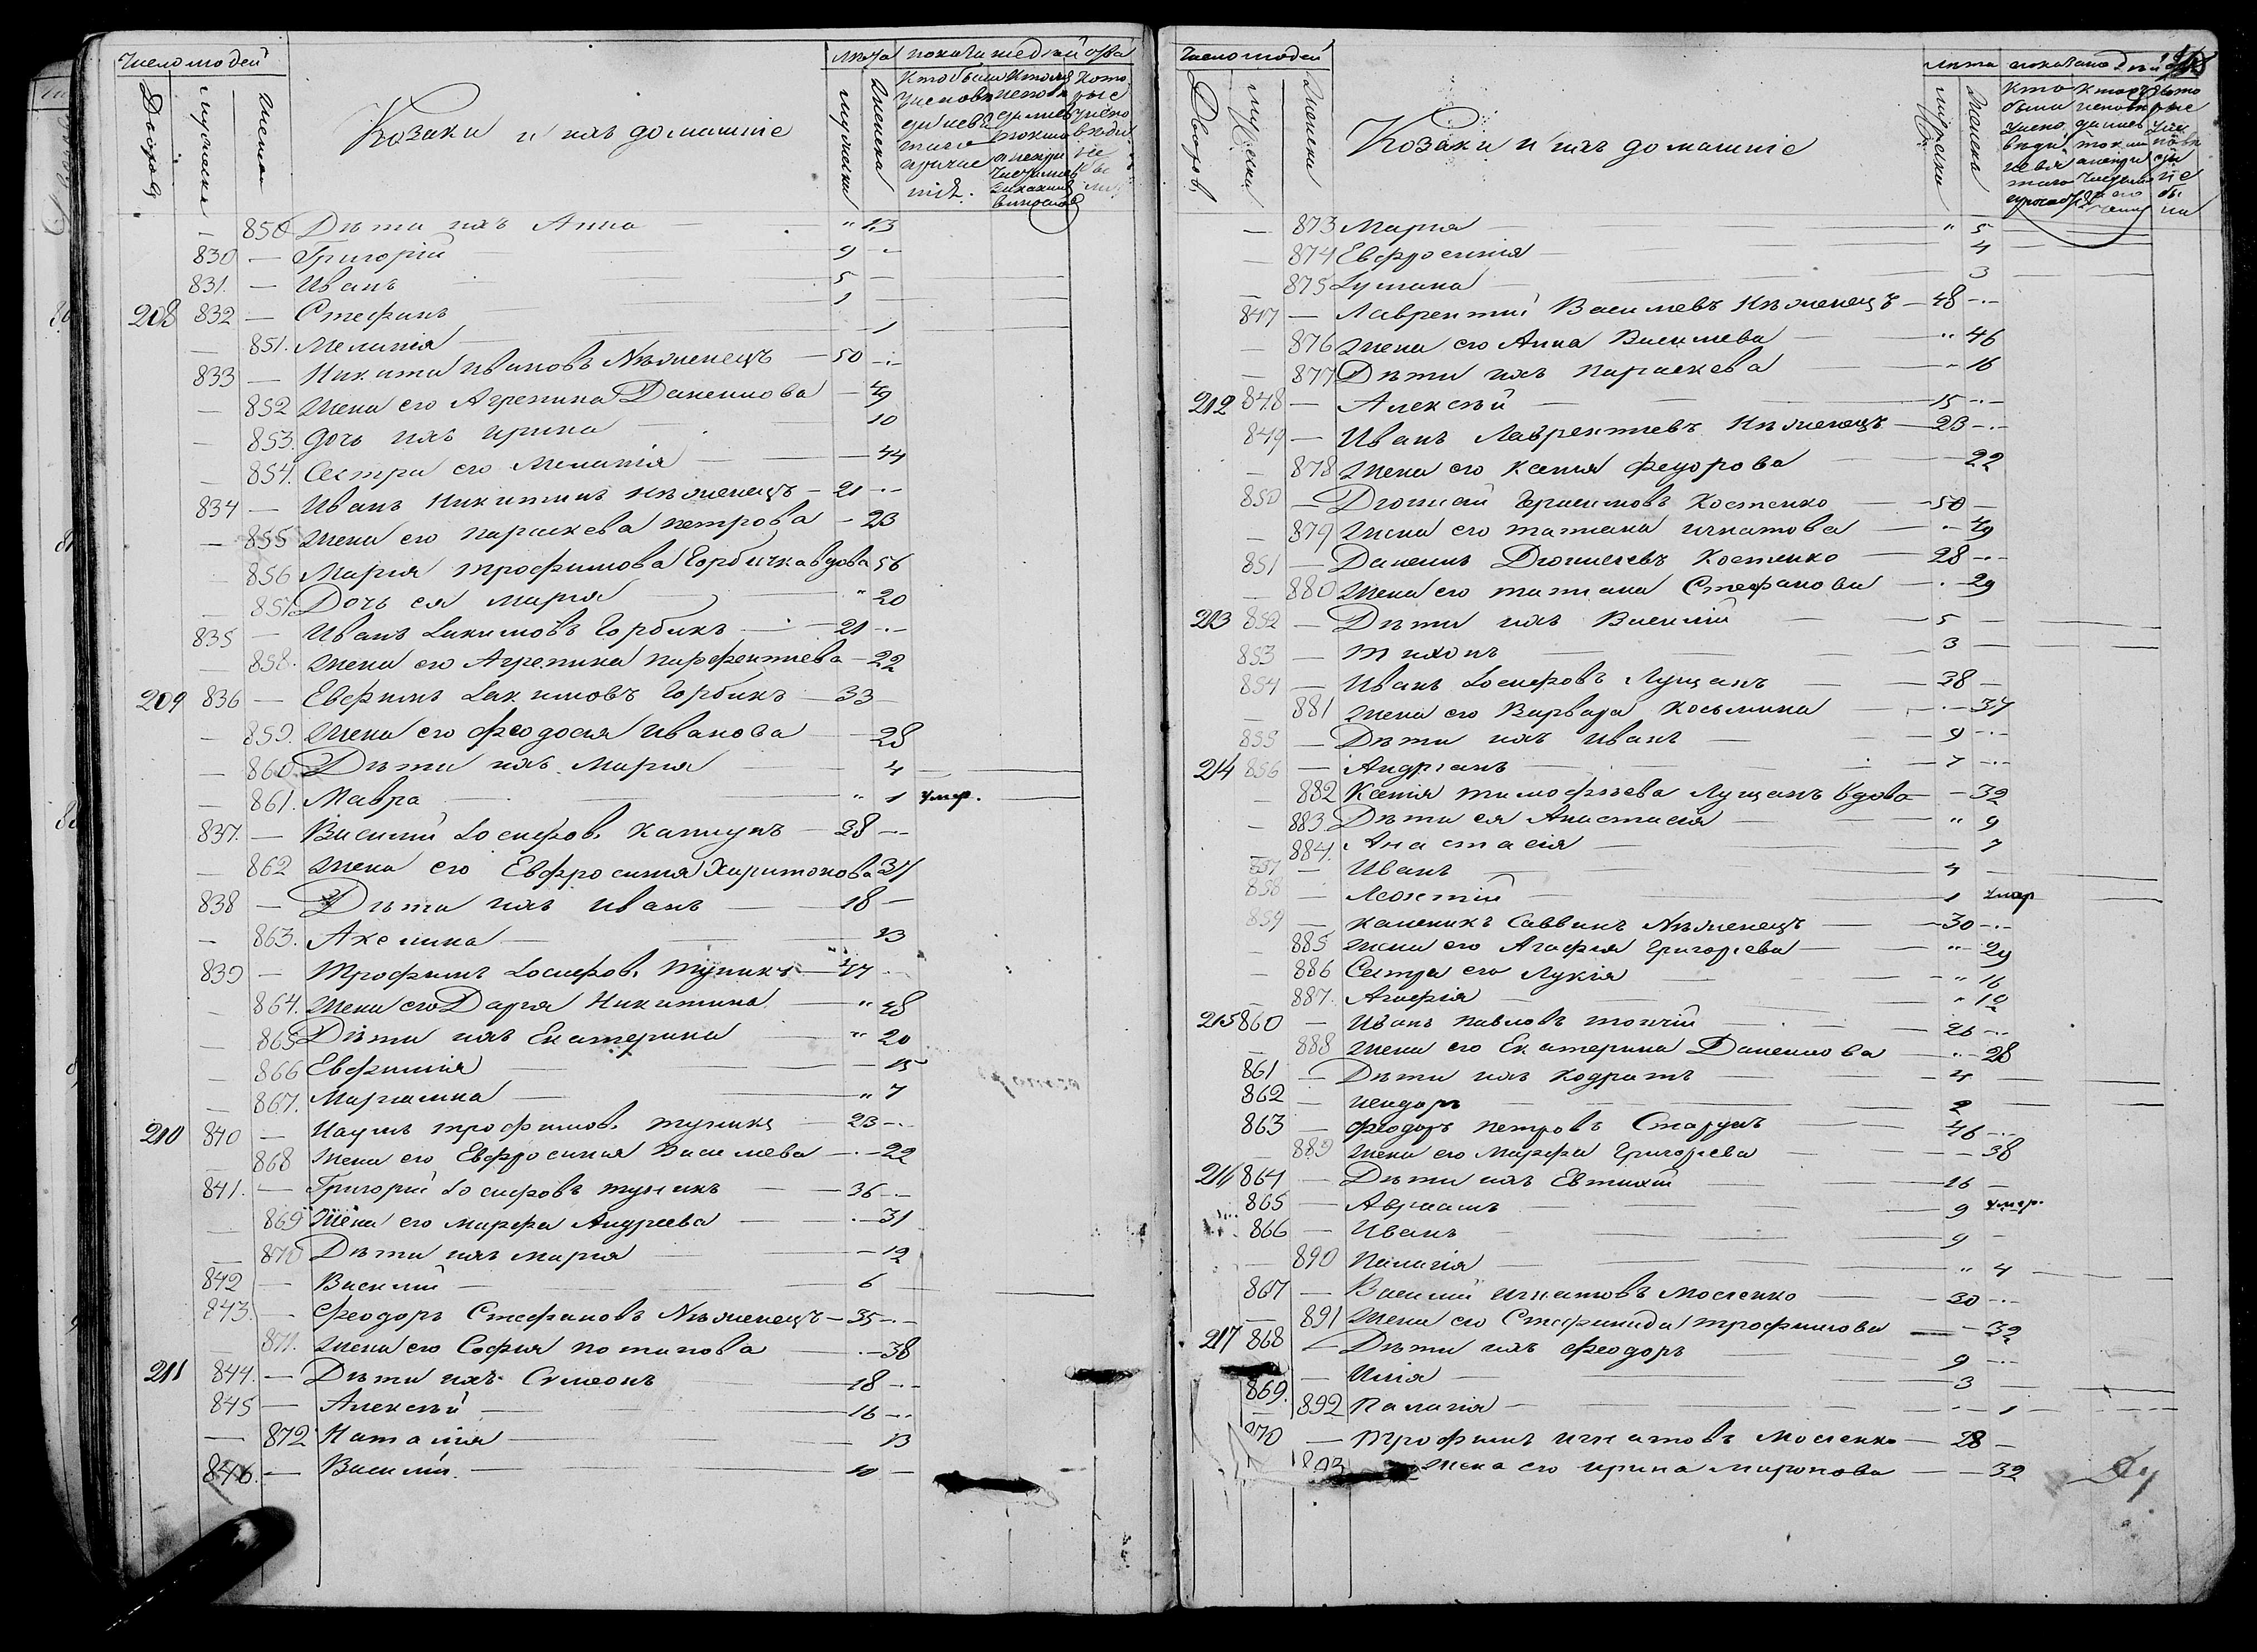 Число людей
Дворов
мужеска
женска
Козаки и ихъ домашніе
Лѣта
мужеска
женска
850 Дѣти ихъ Анна " 13
830 — Григорій 9
831. — Иванъ 5
208 832 — Стефанъ 1
851. Меланія 1
833 — Никита Ивановъ Нѣженецъ 50
852 Жена его Агрепина Даниилова 49
853. Дочь ихъ Ирина 10
854. Сестра его Меланія 44
834 — Иванъ Никитинъ Нѣженецъ 21
855 Жена его Параскева Петрова 23
856 Мария Трофимова Горбичка вдова 56
857 Дочь ея Мария " 20
835 — Иванъ Іакимовъ Горбикъ 21
858. Жена его Агрепина Парфентиева 22
209 836 — Евфимъ Іакимовъ Горбикъ 33
859. Жена его Феодосия Иванова 28
860 Дѣти ихъ Мария 4
861. Мавра " 1 умер.
837. — Василий Іосифов. 38
862 Жена его Евфросиния Харитонова 37
838 — Дѣти ихъ Иванъ 18
863. Акелина 13
839 — Трофимъ Іосифов. Тупикъ 47
864. Жена его Дария Никитина " 48
865 Дѣти ихъ Екатерина " 20
866 Евфимія 15
867. Мариамна " 7
210 840 — Наумъ Трофимов. Тупикъ 23
868 Жена его Евфросиния Василиева 22
841. — Григорій Іосифовъ Тупикъ 36
869 Жена его Марфа Андреева 31
870 Дѣти ихъ Мария 12
842 — Василій 6
843. — Феодоръ Стефановъ Нѣженецъ 35
871. Жена его София Потапова 38
211 844. — Дѣти ихъ Симеонъ 18
845 — Алексѣй 16
— 872 Наталія 13
846. — Василій 10
Число людей
Дворов
мужеска
женска
Козаки и ихъ домашніе
Лѣта
мужеска
женска
873 Мария " 5
874 Евфросинія 4
875 Іулиана 3
847 — Лаврентий Василиевъ Нѣженецъ 48
876 Жена его Анна Василиева " 46
877 Дѣти ихъ Параскева " 16
212 848 — Алексѣй 15
849 — Иванъ Лаврентиевъ Нѣженецъ 23
878 Жена его Ксения Феодорова 22
850 — Герасимовъ Костенко 50
879 Жена его Татиана Игнатова 49
851 — Даниилъ Костенко 28
880 Жена его Татиана Стефанова 29
213 852 — Дѣти ихъ Василій 5
853 — Тихонъ 3
854 — Иванъ Іосифовъ Лущанъ 38
881 Жена его Варвара Косьмина 37
855 — Дѣти ихъ Иванъ 9
214 856 — Андрианъ 7
882 Ксенія Тимофѣева Лущанъ вдова 32
883 Дѣти ея Анастасия " 9
884. Анастасія 7
857 — Иванъ 4
858 Леонтій 1 умер
859 — Калиникъ Саввинъ Нѣженецъ 30
885 Жена его Агафия Григориева " 29
886 Сестра его Лукія " 16
887. Агафія " 12
215 860 — Иванъ Павловъ 26
888 Жена его Екатерина Даниилова 28
861 — Дѣти ихъ Кодратъ 4
862 — Исидоръ 2
863 — Феодоръ Петровъ 46
889 Жена его Марфа Григориева 38
216 864 — Дѣти ихъ Евтихій 16
865 — Авраамъ 9 умер.
866 — Иванъ 9
890 Палагія " 4
867 — Василий Игнатовъ Мосіенко 30
891 Жена его Стефанида Трофимова 32
217 868 — Дѣти ихъ Феодоръ 9
869. — Илія 3
892 Палагія 1
870 — Трофимъ Игнатовъ Мосіенко 28
893 Жена его Ирина Миронова 32